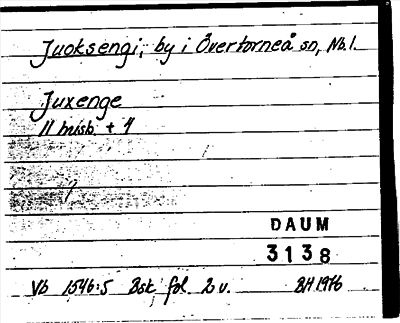 Juoksengi, by i Övertorneå sn, Nb.l.
Juxenge
11 misb. + 4
DAUM
3138
Vb 1546:5 Bsk, fol. 2 v.
BH 1976